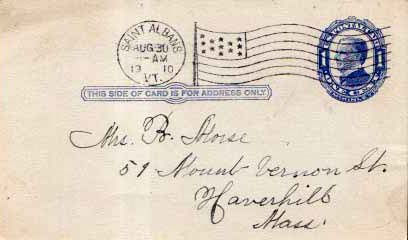 SAINT ALBANS
AUG 30
-AM
1910
VT.
THIS SIDE OF CARD IS FOR ADDRESS ONLY
Mrs. B. Morse
59 Mount Vernon St.
Haverhill
Mass.